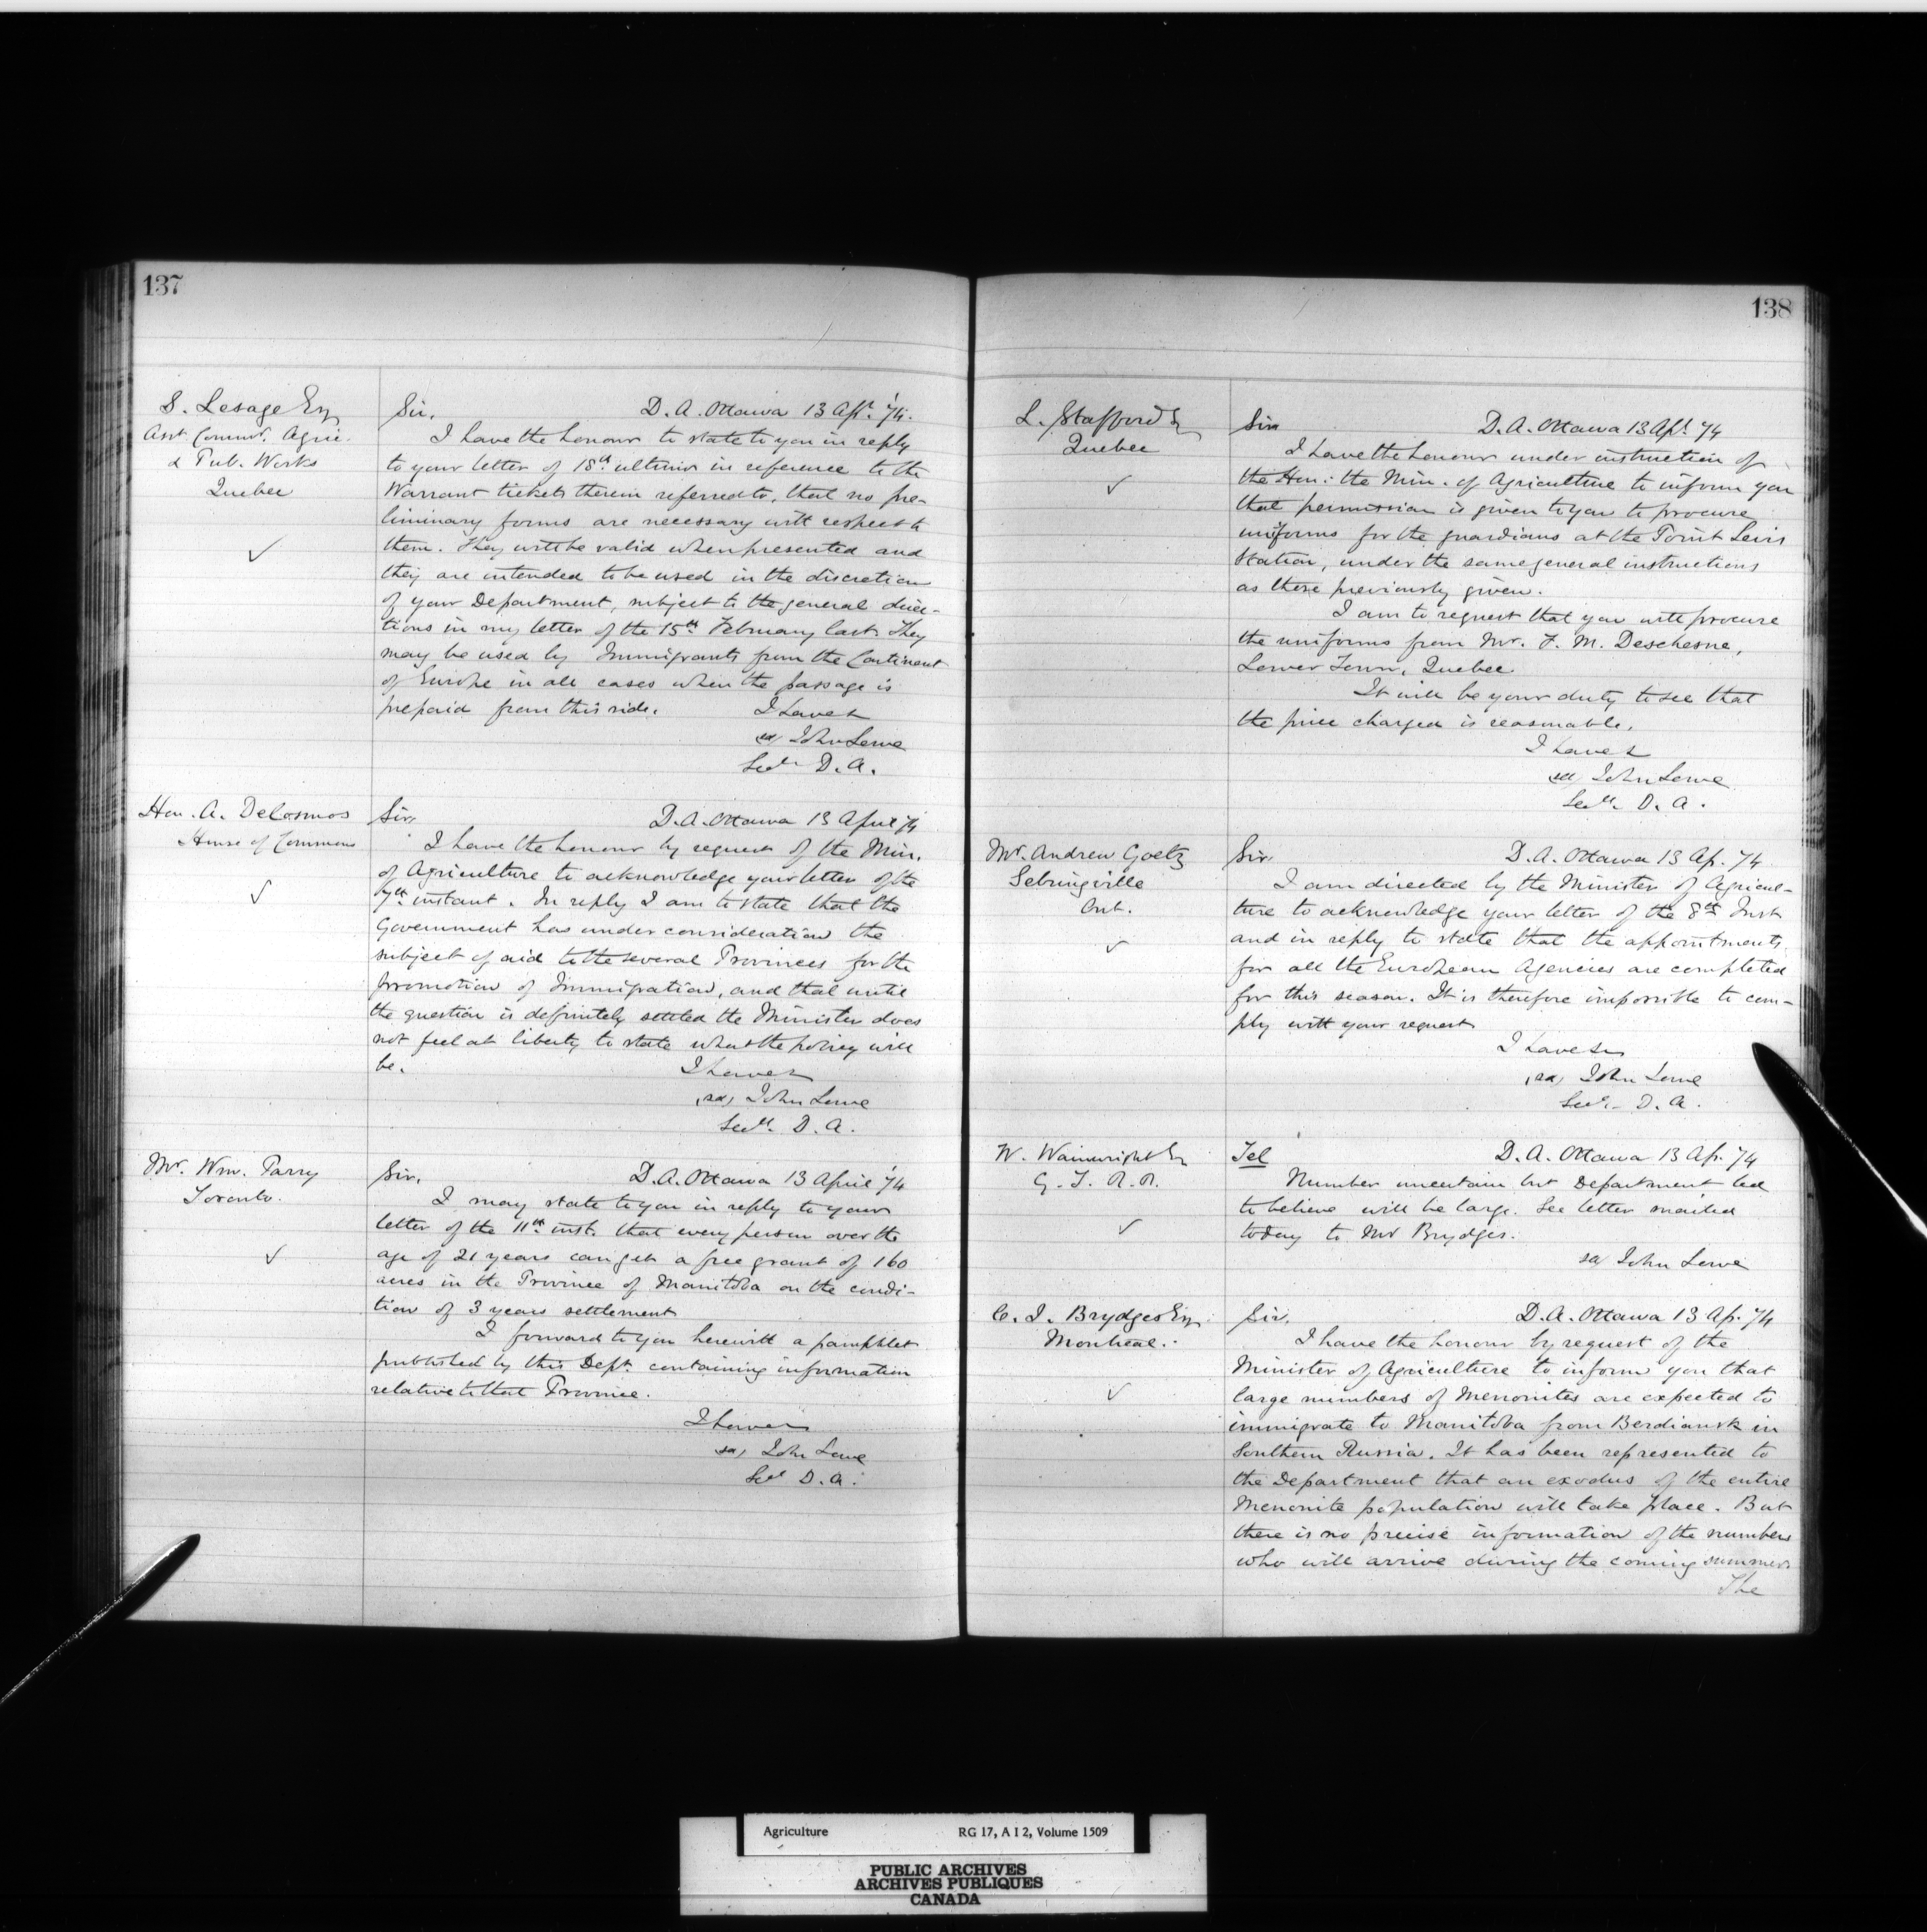 137
S. Lesage Esq
Asst Commr. Agric.
& Pub. Works
Quebec
Sir,
D. A. Ottawa 13 Apl. '74.
I have the honour to state to you in reply
to your letter of 18th ultimo in reference to the
Warrant tickets therein referred to, that no pre-
liminary forms are necessary with respect to
them. They will be valid when presented and
they are intended to be used in the discretion
of your Department, subject to the general direc-
tions in my letter of the 15th February last. They
may be used by Immigrants from the Continent
of Europe in all cases when the passage is
prepaid from this side.
I have &
sd/ John Lowe
Secy D. A.
Hon. A. DeCosmos
House of Commons
Sir,
D. A. Ottawa 13 April '74
I have the honour by request of the Min.
of Agriculture to acknowledge your letter of the
7th instant. In reply I am to state that the
Government has under consideration the
subject of aid to the several Provinces for the
promotion of Immigration, and that until
the question is definitely settled the Minister does
not feel at liberty to state what the policy will
be.
I have &
(sd) John Lowe
Secy. D. A.
Mr. Wm. Parry
Toronto.
Sir,
D. A. Ottawa 13 April '74
I may state to you in reply to your
letter of the 11th inst. that every person over the
age of 21 years can get a free grant of 160
acres in the Province of Manitoba on the condi-
tion of 3 years settlement
I forward to you herewith a pamphlet
published by this Dept. containing information
relative to that Province.
I have &
sd) John Lowe
Secy D. A.
138
L. Stafford Es
Quebec
Sir
D. A. Ottawa 13 Apl. 74
I have the honour under instruction of
the Hon: the Min. of Agriculture to inform you
that permission is given to you to procure
uniforms for the guardians at the Point Levis
Station, under the same general instructions
as those previously given.
I am to request that you will procure
the uniforms from Mr. F. M. Deschesne,
Lower Town, Quebec.
It will be your duty to see that
the price charged is reasonable.
I have &
sd) John Lowe
Secy. D. A.
Mr. Andrew Goetz
Sebringville
Ont.
Sir,
D. A. Ottawa 13 Ap. 74
I am directed by the Minister of Agricul-
ture to acknowledge your letter of the 8th Inst
and in reply to state that the appointments
for all the European Agencies are completed
for this season. It is therefore impossible to com-
ply with your request
I have &c
(sd) John Lowe
Secy. D. A.
W. Wainwright Es
G. T. R. R.
Tel
D. A. Ottawa 13 Ap. 74
Number uncertain but Department led
to believe will be large. See letter mailed
today to Mr Brydges.
sd John Lowe
C. J. Brydges Esq.
Montreal.
Sir.
D. A. Ottawa 13 Ap. 74
I have the honour by request of the
Minister of Agriculture to inform you that
large numbers of Menonites are expected to
immigrate to Manitoba from Berdiansk in
Southern Russia. It has been represented to
the Department that an exodus of the entire
Menonite population will take place. But
there is no precise information of the numbers
who will arrive during the coming summer.
The
Agriculture RG 17, A I 2, Volume 1509
PUBLIC ARCHIVES
ARCHIVES PUBLIQUES
CANADA